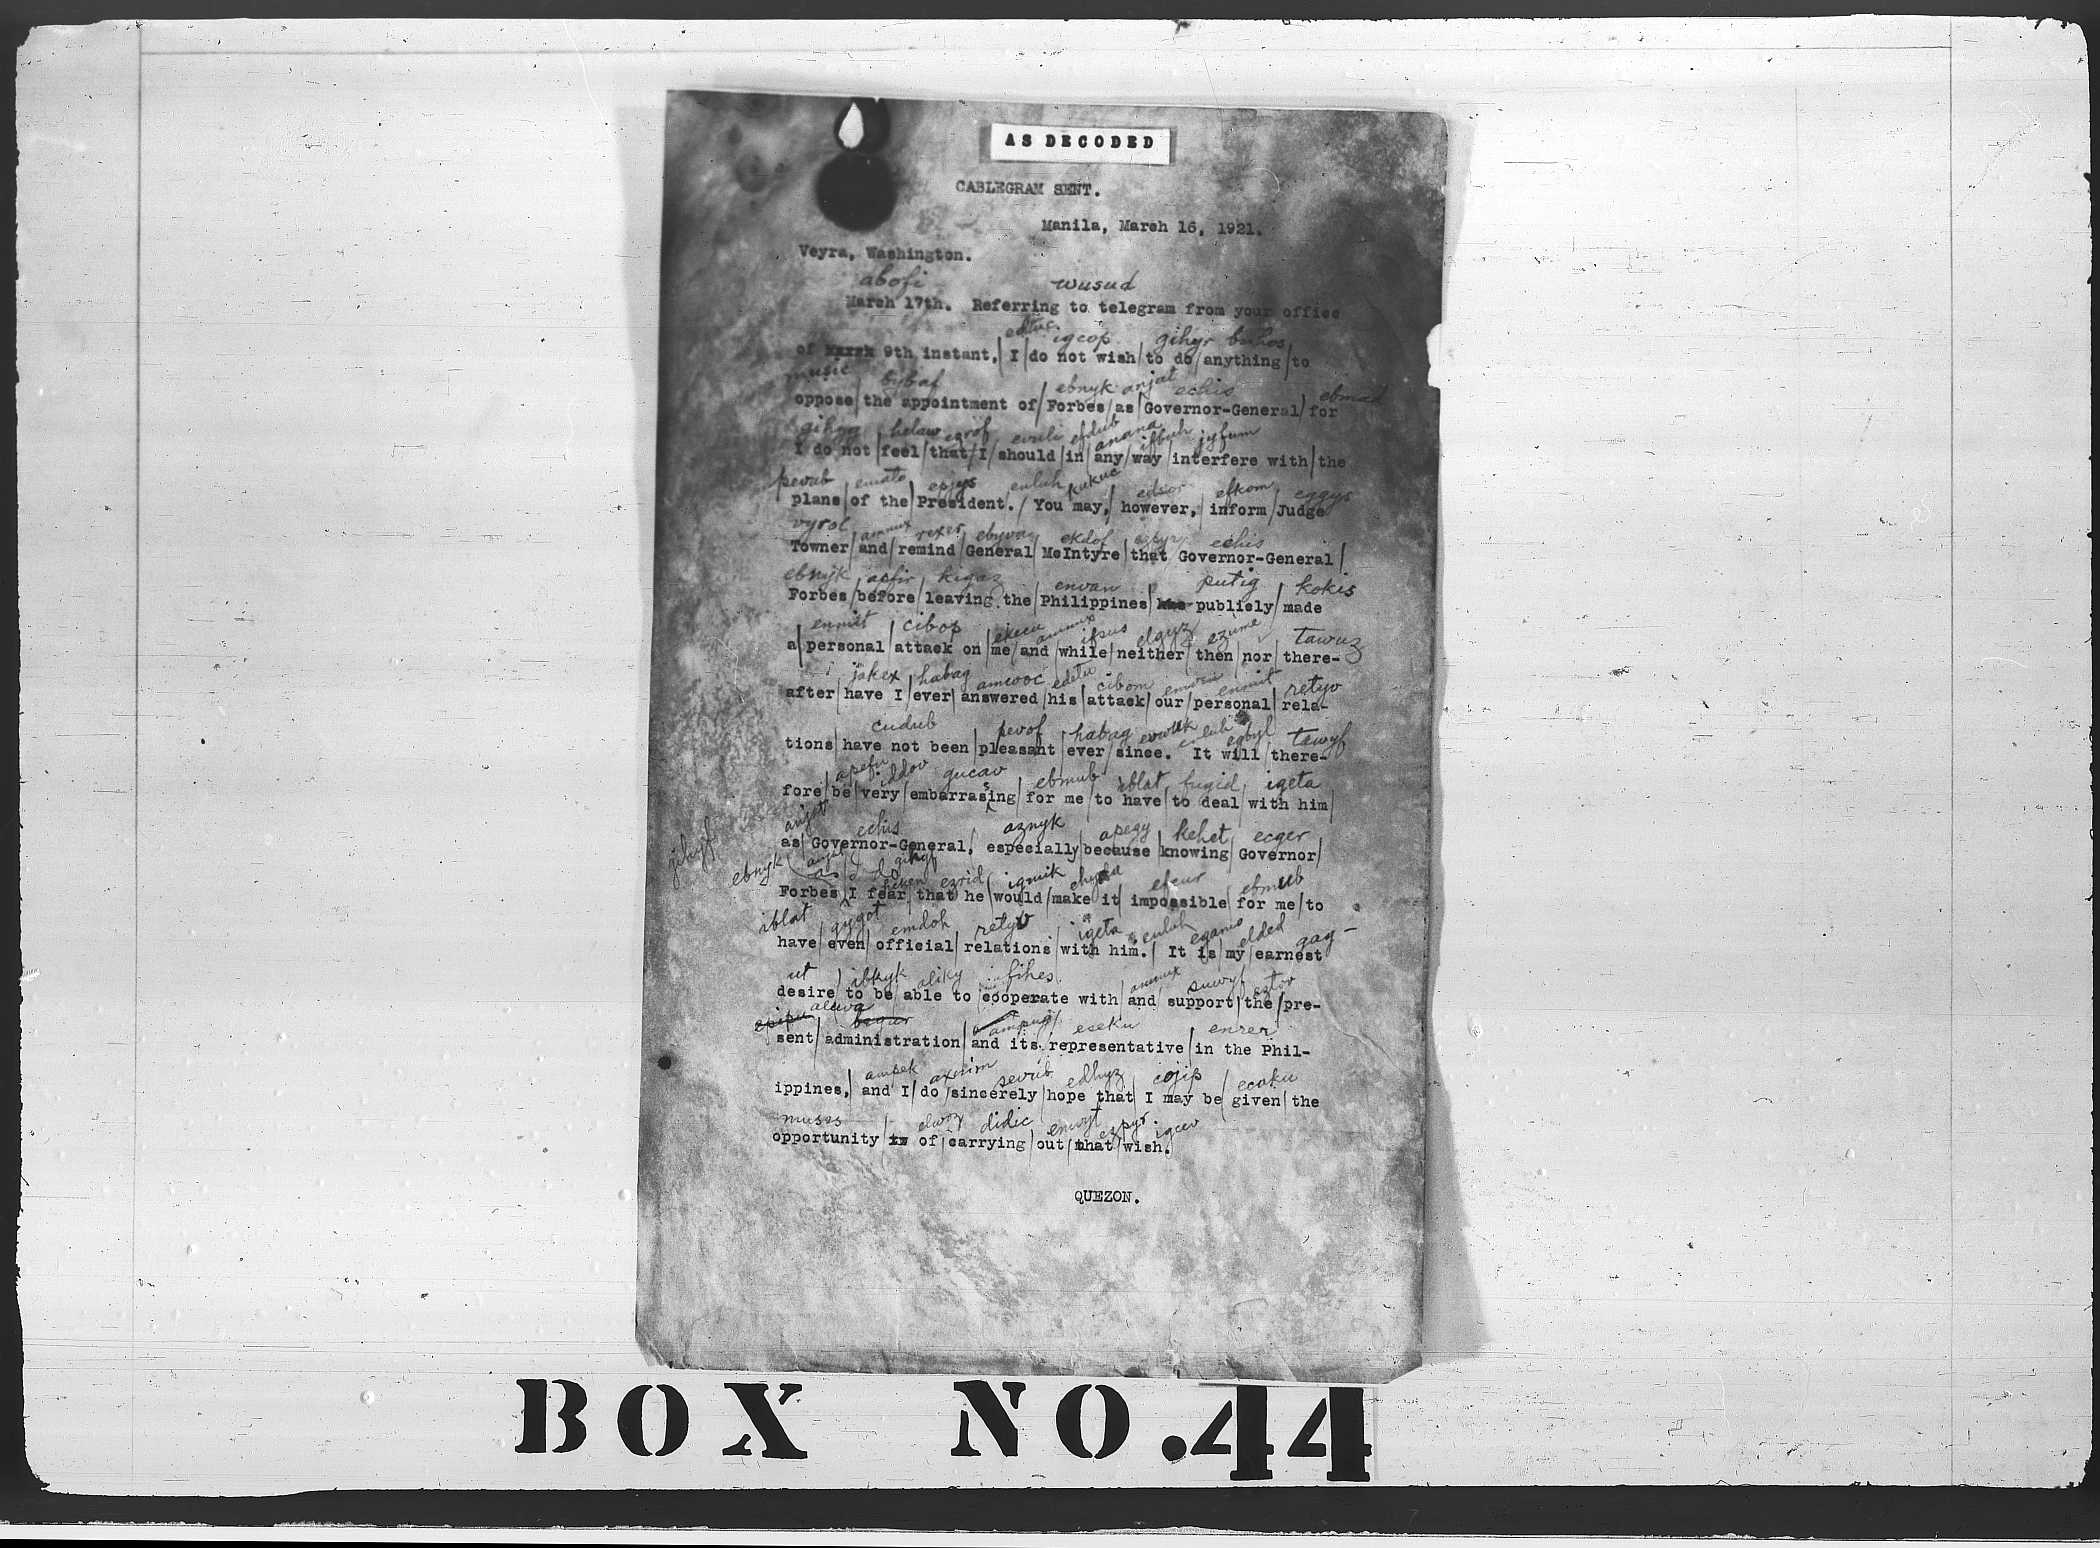 AS DECODED
CABLEGRAM SENT.
Manila, March 16, 1921.
Veyra, Washington.
abofi wusud
March 17th. Referring to telegram from your office
igcop gihyr buhos
of 9th instant, I do not wish to do anything to
music bybaf ebnyk anjat echis
oppose the appointment of Forbes as Governor-General for
helaw efdub anana jyfum
I do not feel that I should in any way interfere with the
pevub emato epjys enluh kukuc edsor efkom eggys
plans of the President. You may, however, inform Judge
vyrol ammux rexer ekdof echis
Towner and remind General McIntyre that Governor-General
ebnyk apfir kigaz envan putig kokis
Forbes before leaving the Philippines publicly made
enmit cibop ammux ifsus elgyz ezume tawuz
a personal attack on me and while neither then nor there-
jakex habag amwoc cibom enmit retyv
after have I ever answered his attack our personal rela-
cudub pevof habag egbyl tawyf
tions have not been pleasant ever since. It will there-
iddov gucav ebmub iblat fugid igeta
fore be very embarrasing for me to have to deal with him
anjat echis aznyk apegy kehet ecger
as Governor-General, especially because knowing Governor
ebnyk as I do ezrid igmik efeur ebmub
Forbes I fear that he would make it impossible for me to
iblat gygot emdoh retyv igeta enluh elded gag-
have even official relations with him. It is my earnest
ut ibkyk aliky fihes ammux suwyf
desire to be able to cooperate with and support the pre-
eseku enrer
sent administration and its representative in the Phil-
axrim sevub edhyz cojip ecoku
ippines, and I do sincerely hope that I may be given the
didic ezpyr igcev
opportunity of carrying out that wish.
QUEZON.
BOX NO.44